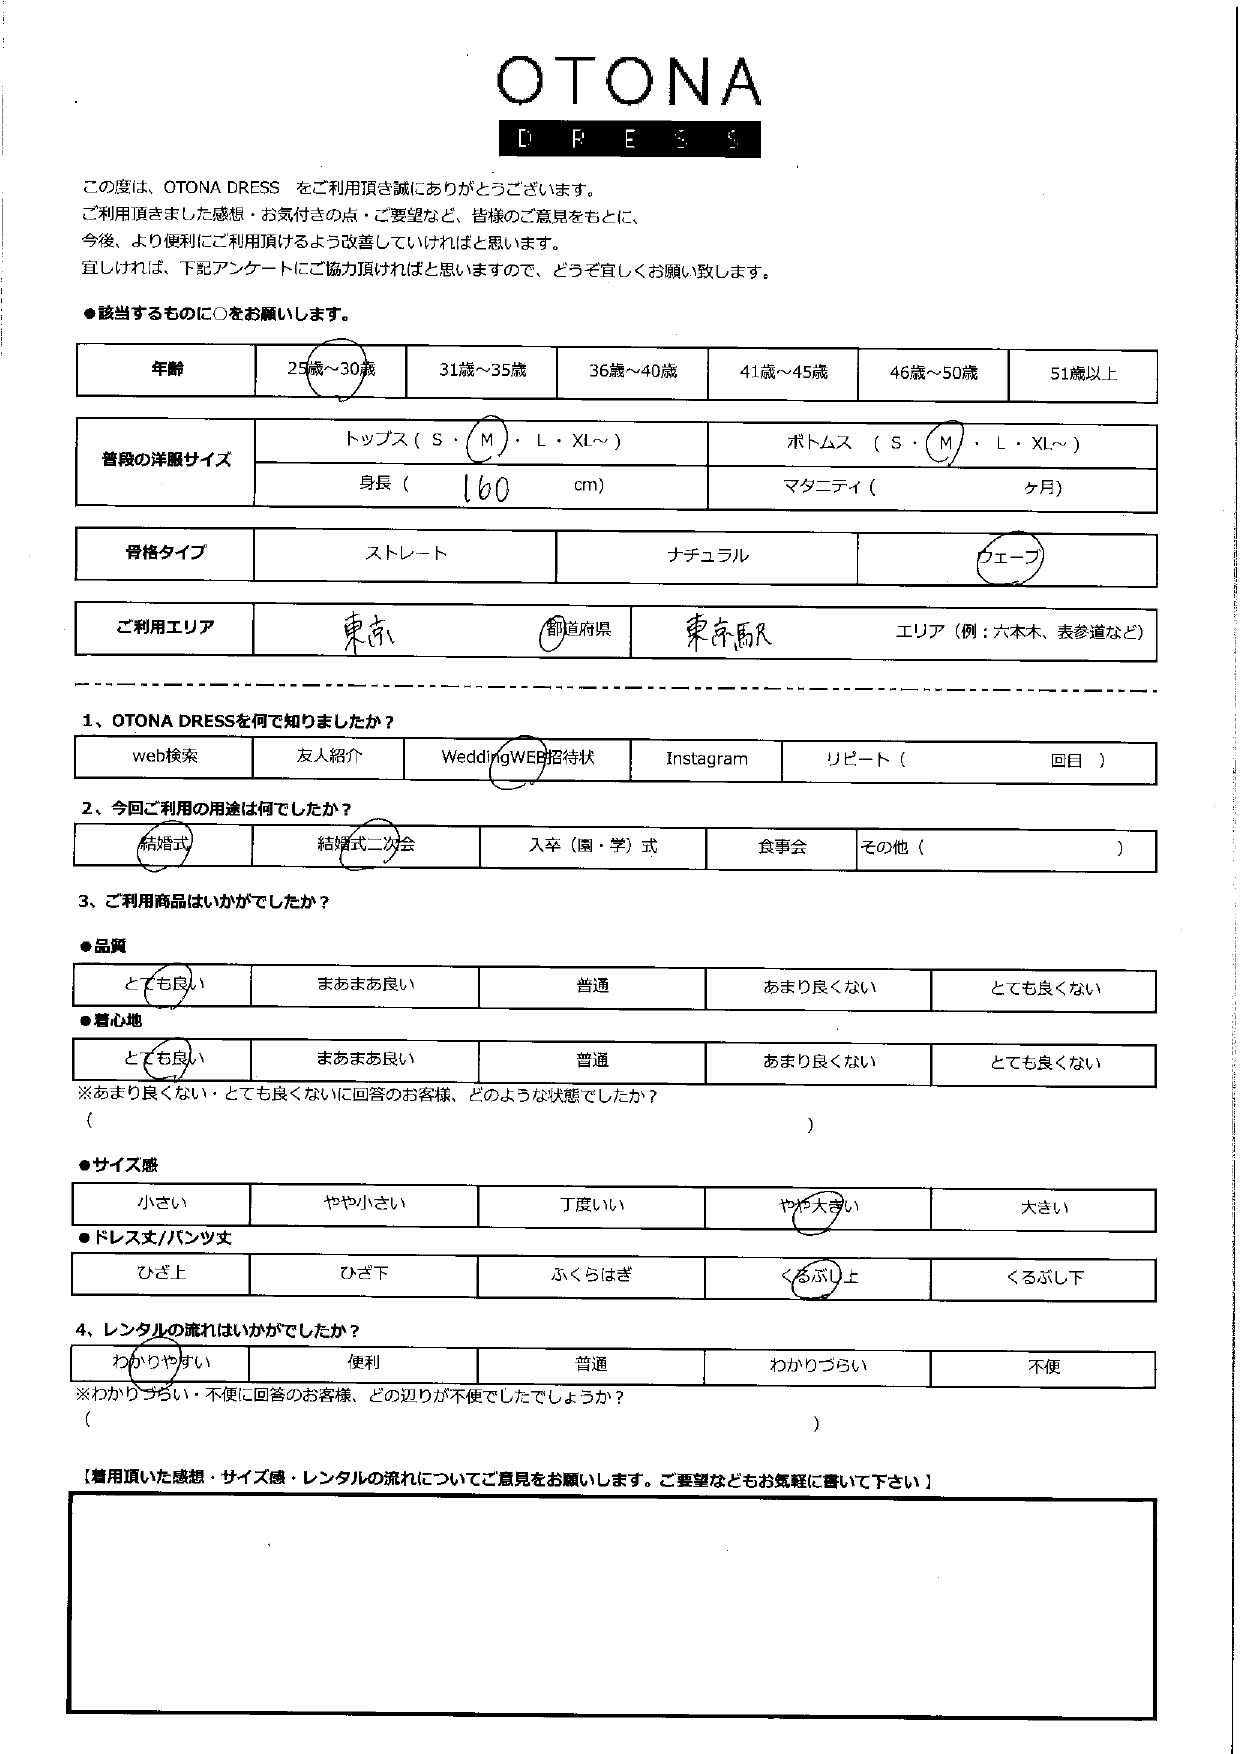 OTONA
DRESS
この度は、OTONA DRESS をご利用頂き誠にありがとうございます。
ご利用頂きました感想・お気付きの点・ご要望など、皆様のご意見をもとに、
今後、より便利にご利用頂けるよう改善していければと思います。
宜しければ、下記アンケートにご協力頂ければと思いますので、どうぞ宜しくお願い致します。
●該当するものに○をお願いします。
年齢 25歳～30歳 31歳～35歳 36歳～40歳 41歳～45歳 46歳～50歳 51歳以上
普段の洋服サイズ トップス ( S ・ M ・ L ・ XL～ ) ボトムス ( S ・ M ・ L ・ XL～ )
身長 ( 160 cm) マタニティ ( ヶ月)
骨格タイプ ストレート ナチュラル ウェーブ
ご利用エリア 東京 都道府県 東京駅 エリア（例：六本木、表参道など）
1、OTONA DRESSを何で知りましたか？
web検索 友人紹介 WeddingWEB招待状 Instagram リピート ( 回目 )
2、今回ご利用の用途は何でしたか？
結婚式 結婚式二次会 入卒（園・学）式 食事会 その他 ( )
3、ご利用商品はいかがでしたか？
●品質
とても良い まあまあ良い 普通 あまり良くない とても良くない
●着心地
とても良い まあまあ良い 普通 あまり良くない とても良くない
※あまり良くない・とても良くないに回答のお客様、どのような状態でしたか？
( )
●サイズ感
小さい やや小さい 丁度いい やや大きい 大きい
●ドレス丈/パンツ丈
ひざ上 ひざ下 ふくらはぎ くるぶし上 くるぶし下
4、レンタルの流れはいかがでしたか？
わかりやすい 便利 普通 わかりづらい 不便
※わかりづらい・不便に回答のお客様、どの辺りが不便でしたでしょうか？
( )
【着用頂いた感想・サイズ感・レンタルの流れについてご意見をお願いします。ご要望などもお気軽に書いて下さい】